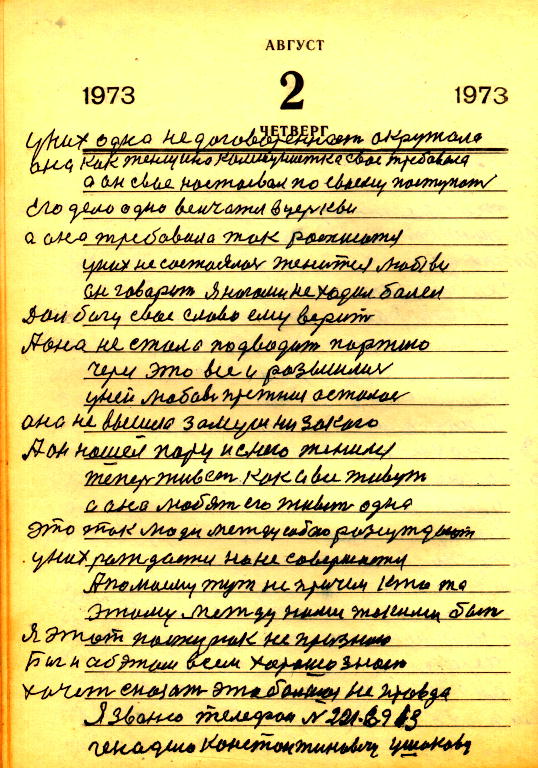 АВГУСТ
1973 2 1973
ЧЕТВЕРГ
у них одна не договоренаст окружала
она как женщино коммунистка свое требовала
а он свое настоевал по своему поступат
Его дело одно венчатя в церкви
а она требовала так росписатя
у них не состоялас женитя любви
он говорит я ногоми не ходил болел
Дал богу свое слово ему верит
А она не стала подводит портию
через это все и розышлис
у ней любов прежния осталас
она не вышла замуш ни за кого
А он нашел пару и с ного женилс
тепер живет как и все живут
а она любят его живет одна
Это так люди между собою розсуждают
у них рождается но не совершается
А по моему тут не причем кто то
Этому между ними тожили быт
Я этот поступок не признаю
Бог и об этом всем хорошо знает
хочет сказат это не правда
Я звоню телефон N 221-69 13
генадию Константиновичу ушакову